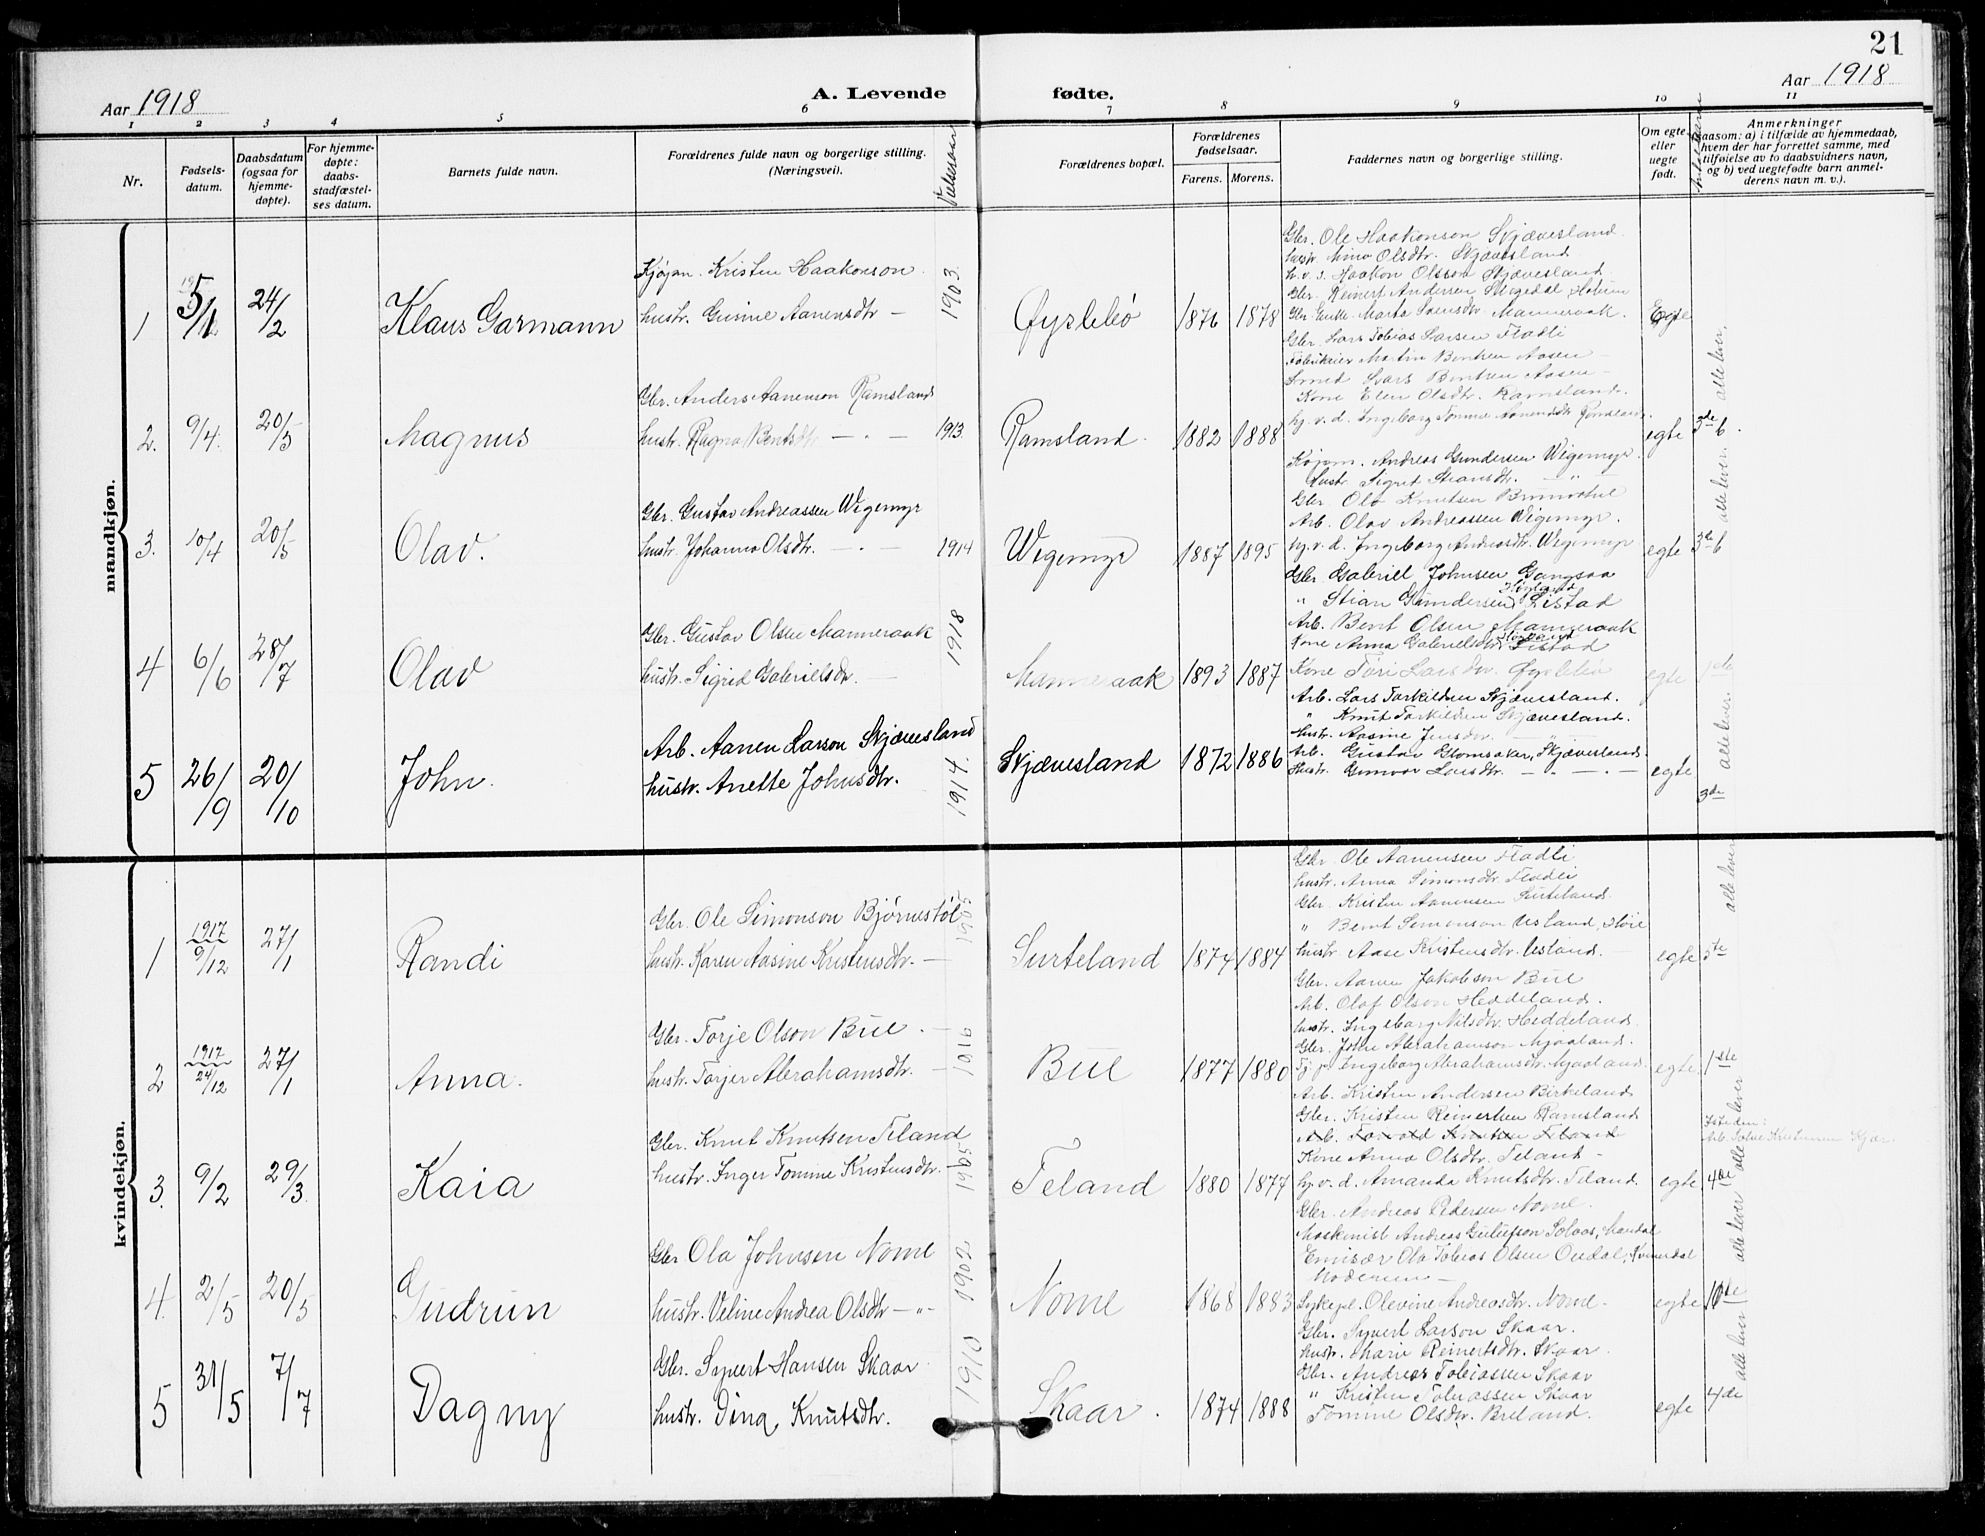 21
Aar 1918
A. Levende
fødte.
Aar 1918
1 2 3 4 5 6 7 8 9 10 11
Nr.
Fødsels-
datum.
Daabsdatum
(ogsaa for
hjemme-
døpte).
For hjemme-
døpte:
daabs-
stadfæstel-
ses datum.
Barnets fulde navn.
Forældrenes fulde navn og borgerlige stilling.
(Næringsvei).
Forældrenes bopæl.
Forældrenes
fødselsaar.
Farens. Morens.
Faddernes navn og borgerlige stilling.
Om egte
eller
uegte
født.
Anmerkninger
saasom: a) i tilfælde av hjemmedaab,
hvem der har forrettet samme, med
tilføielse av to daabsvidners navn,
og b) ved uegtefødte barn anmel-
derens navn m. v.).
mandkjøn.
1
5/1
24/2
Klaus Garmann
Kjøpm. Kristen Haakonson
hustr. Gurine Aanensdtr —
1903
Øyslebø
1876 1878
Gbr. Ole Haakonson Skjævesland
hustr. Olsdtr. Skjævesland
Haakon Olsson Skjævesland
Gbr. Reinert Andersen
Gbr. Enke Marta Svensdtr Manneraak.
Egte
2.
9/4.
20/5
Magnus
Gbr. Anders Aanenson Ramsland
hustr. Ragna Bentsdtr — " —
1913
Ramsland.
1882 1888
Gbr. Lars Tobias Larsen Fladli
Fabrikeier Martin Bentsen Aasen
Smed Lars Bentsen Aasen
Kone Elen Olsdtr. Ramsland.
hj. v. d. Ingeborg Tomine Aanensdtr Ramsland.
egte
3de b.
alle lever.
3.
10/4
20/5
Olav.
Gbr. Gustav Andreassen Wigemyr
hustr. Johanna Olsdtr. — " —
1914
Wigemyr
1887 1895
Kjøpm. Andreas Gundersen Wigemyr.
hustr. Sigrid
Gbr. Ola Knutsen
Arb. Olav Andreassen Wigemyr.
hj. v. d. Ingeborg Andreasdtr. Wigemyr
egte
3de b
alle lever.
4
6/6
28/7
Olav
Gbr. Gustav Olsen Manneraak
hustr. Sigrid Gabrielsdtr. —
1918
Manneraak
1893 1887
Gbr. Gabriel Johnsen Gangsaa
" Stian Gundersen Listad
Arb. Bent Olsen Manneraak
Kone Anna Gabrielsdtr Listad
Kone Tori Larsdtr. Øyslebø
egte
1ste
5
26/9
20/10
John.
Arb. Aanen Larson Skjævesland
hustr. Anette Johnsdtr.
1914.
Skjævesland
1872 1886
Arb. Lars Torkildsen Skjævesland.
" Knut Torkildsen Skjævesland.
hustr. Aasine Jensdtr. — " —
Arb. Gustav Glomsaker, Skjævesland
Hustr. Gunvor Larsdtr. — " — " —
egte
3de
alle lever.
kvindekjøn.
1
1917
9/12
27/1
Randi
Gbr. Ole Simonson Bjørnestøl
hustr. Karen Aasine Kristensdtr. —
1905
Surteland
1874 1884
Gbr. Ole Aanensen Fladli
hustr. Anna Simonsdtr. Fladli
Gbr. Kristen Aanensen Surteland.
" Bent Simonson Usland,
hustr. Aase Kristensdtr. Usland. —
egte
5te
alle lever
2
1917
24/12
27/1
Anna.
Gbr. Torje Olson Bue —
hustr. Torjer Abrahamsdtr. —
1916
Bue
1877 1880
Gbr. Aanen Jakobson Bue
Arb. Olaf Olson Heddeland.
hustr. Ingeborg Nilsdtr. Heddeland.
Gbr. John Abrahamson Mjaaland.
Ingeborg Abrahamsdtr. Mjaaland.
egte.
1ste
3.
9/2
29/3.
Kaia
Gbr. Knut Knutsen Teland
hustr. Inger Tomine Kristensdtr.
1905
Teland
1880 1877
Arb. Kristen Andersen Birkeland
Gbr. Kristen Reinertsen Ramsland
Arb. Torvald Knutsen Teland
Kone Anna Olsdtr. Teland —
hj. v. d. Amanda Knutsdtr. Teland.
egte
4de
Isteden:
Arb. Tobias Kristensen
alle lever
4.
2/5
20/5
Gudrun
Gbr Ola Johnsen Nome
hustr. Veline Andrea Olsdtr — " —
1902
Nome
1868 1883
Gbr. Andreas Pedersen Nome.
Maskinist Andreas Gulufson Solaas, Mandal
Emisær Ola Tobias Olsen Omdal, Kvinesdal
Moderen —
Sykepl. Olevine Andreasdtr. Nome.
egte
10de
alle lever
5
31/5
7/7
Dagny
Gbr. Syvert Hansen Skaar
hustr. Dina Knutsdtr.
1910
Skaar.
1874 1888
Gbr. Syvert Larson Skaar.
hustr. Marie Reinertsdtr. Skaar.
Gbr. Andreas Tobiassen Skaar
" Kristen Tobiassen Skaar
Tomine Olsdtr. Breland.
egte
4de
alle lever